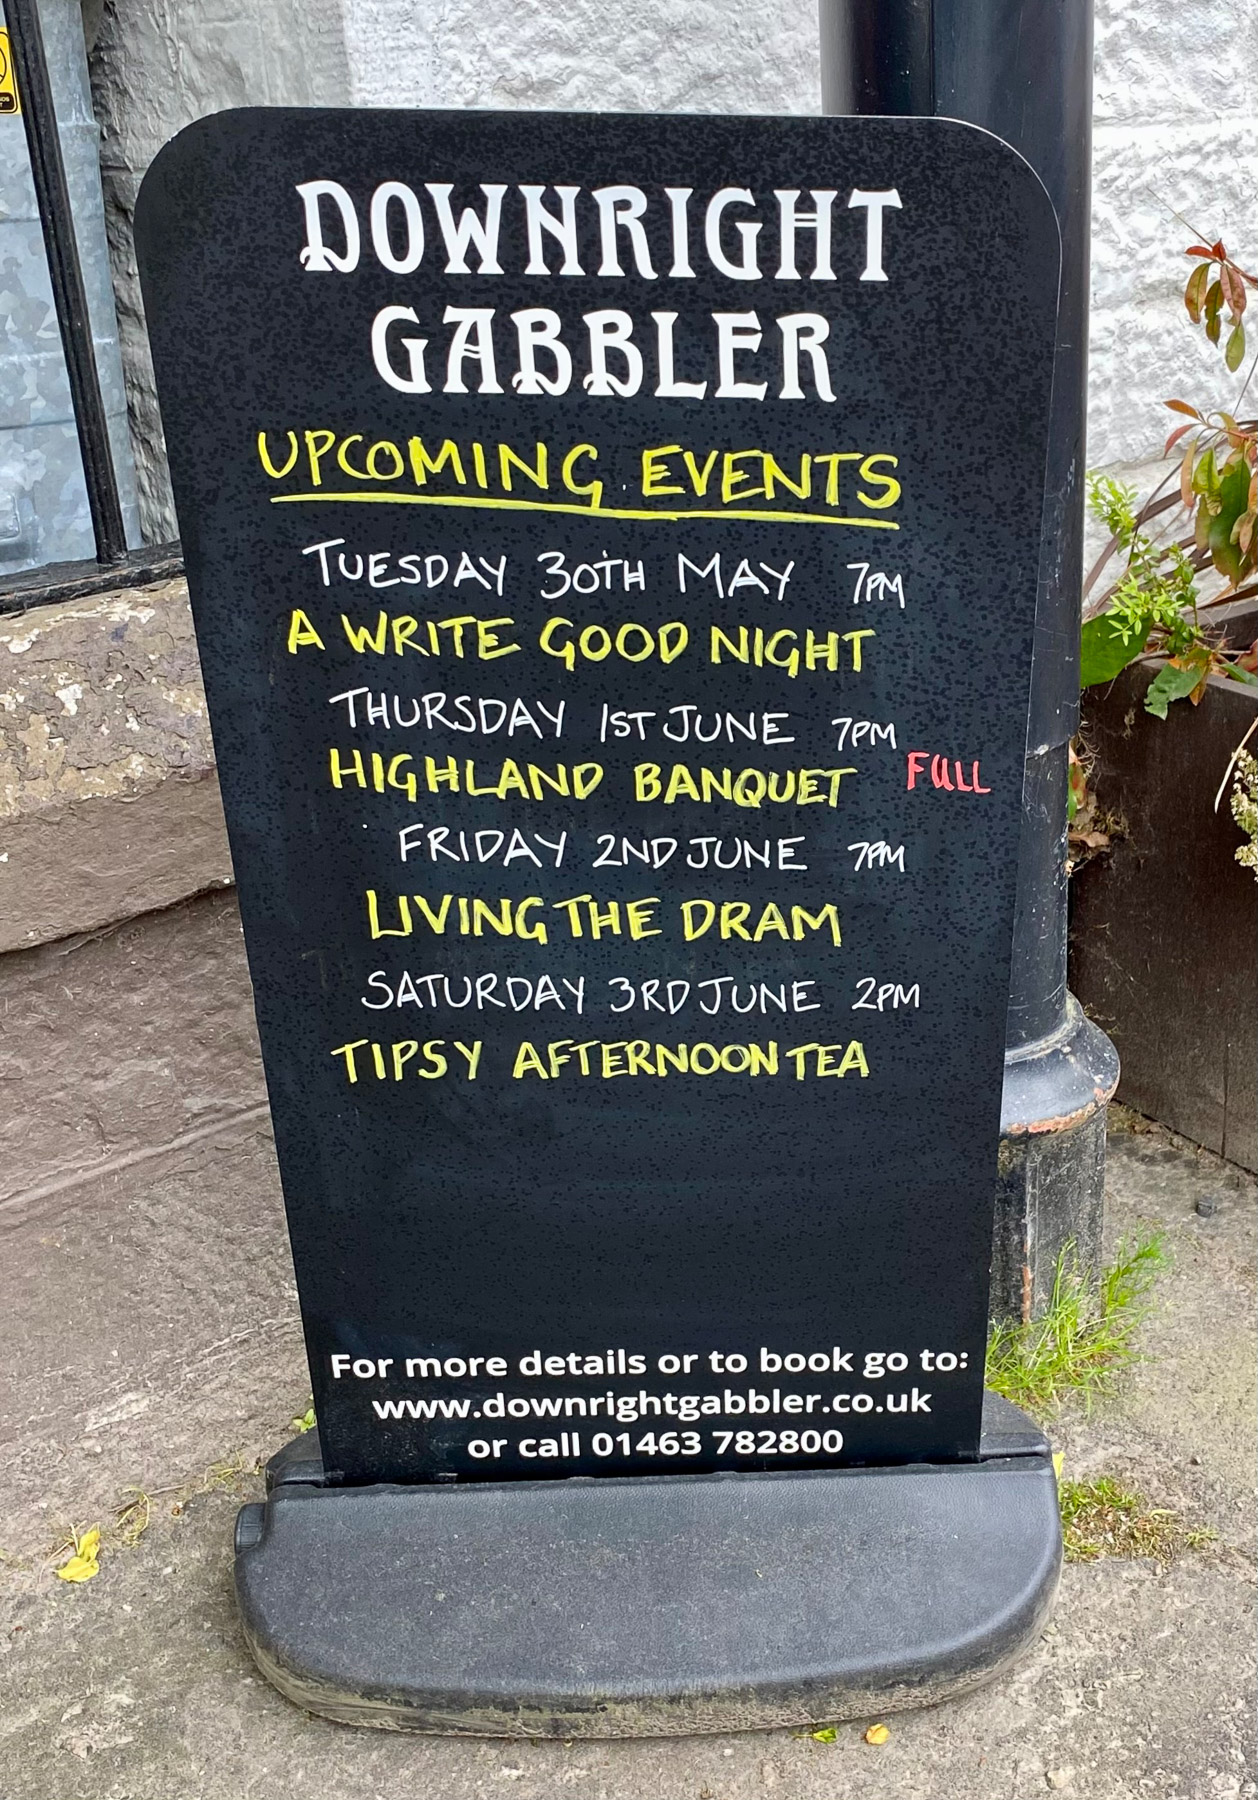 DOWNRIGHT
GABBLER
UPCOMING EVENTS
TUESDAY 30TH MAY 7PM
A WRITE GOOD NIGHT
THURSDAY 1ST JUNE 7PM
HIGHLAND BANQUET FULL
FRIDAY 2ND JUNE 7PM
LIVING THE DRAM
SATURDAY 3RD JUNE 2PM
TIPSY AFTERNOON TEA
For more details or to book go to:
www.downrightgabbler.co.uk
or call 01463 782800